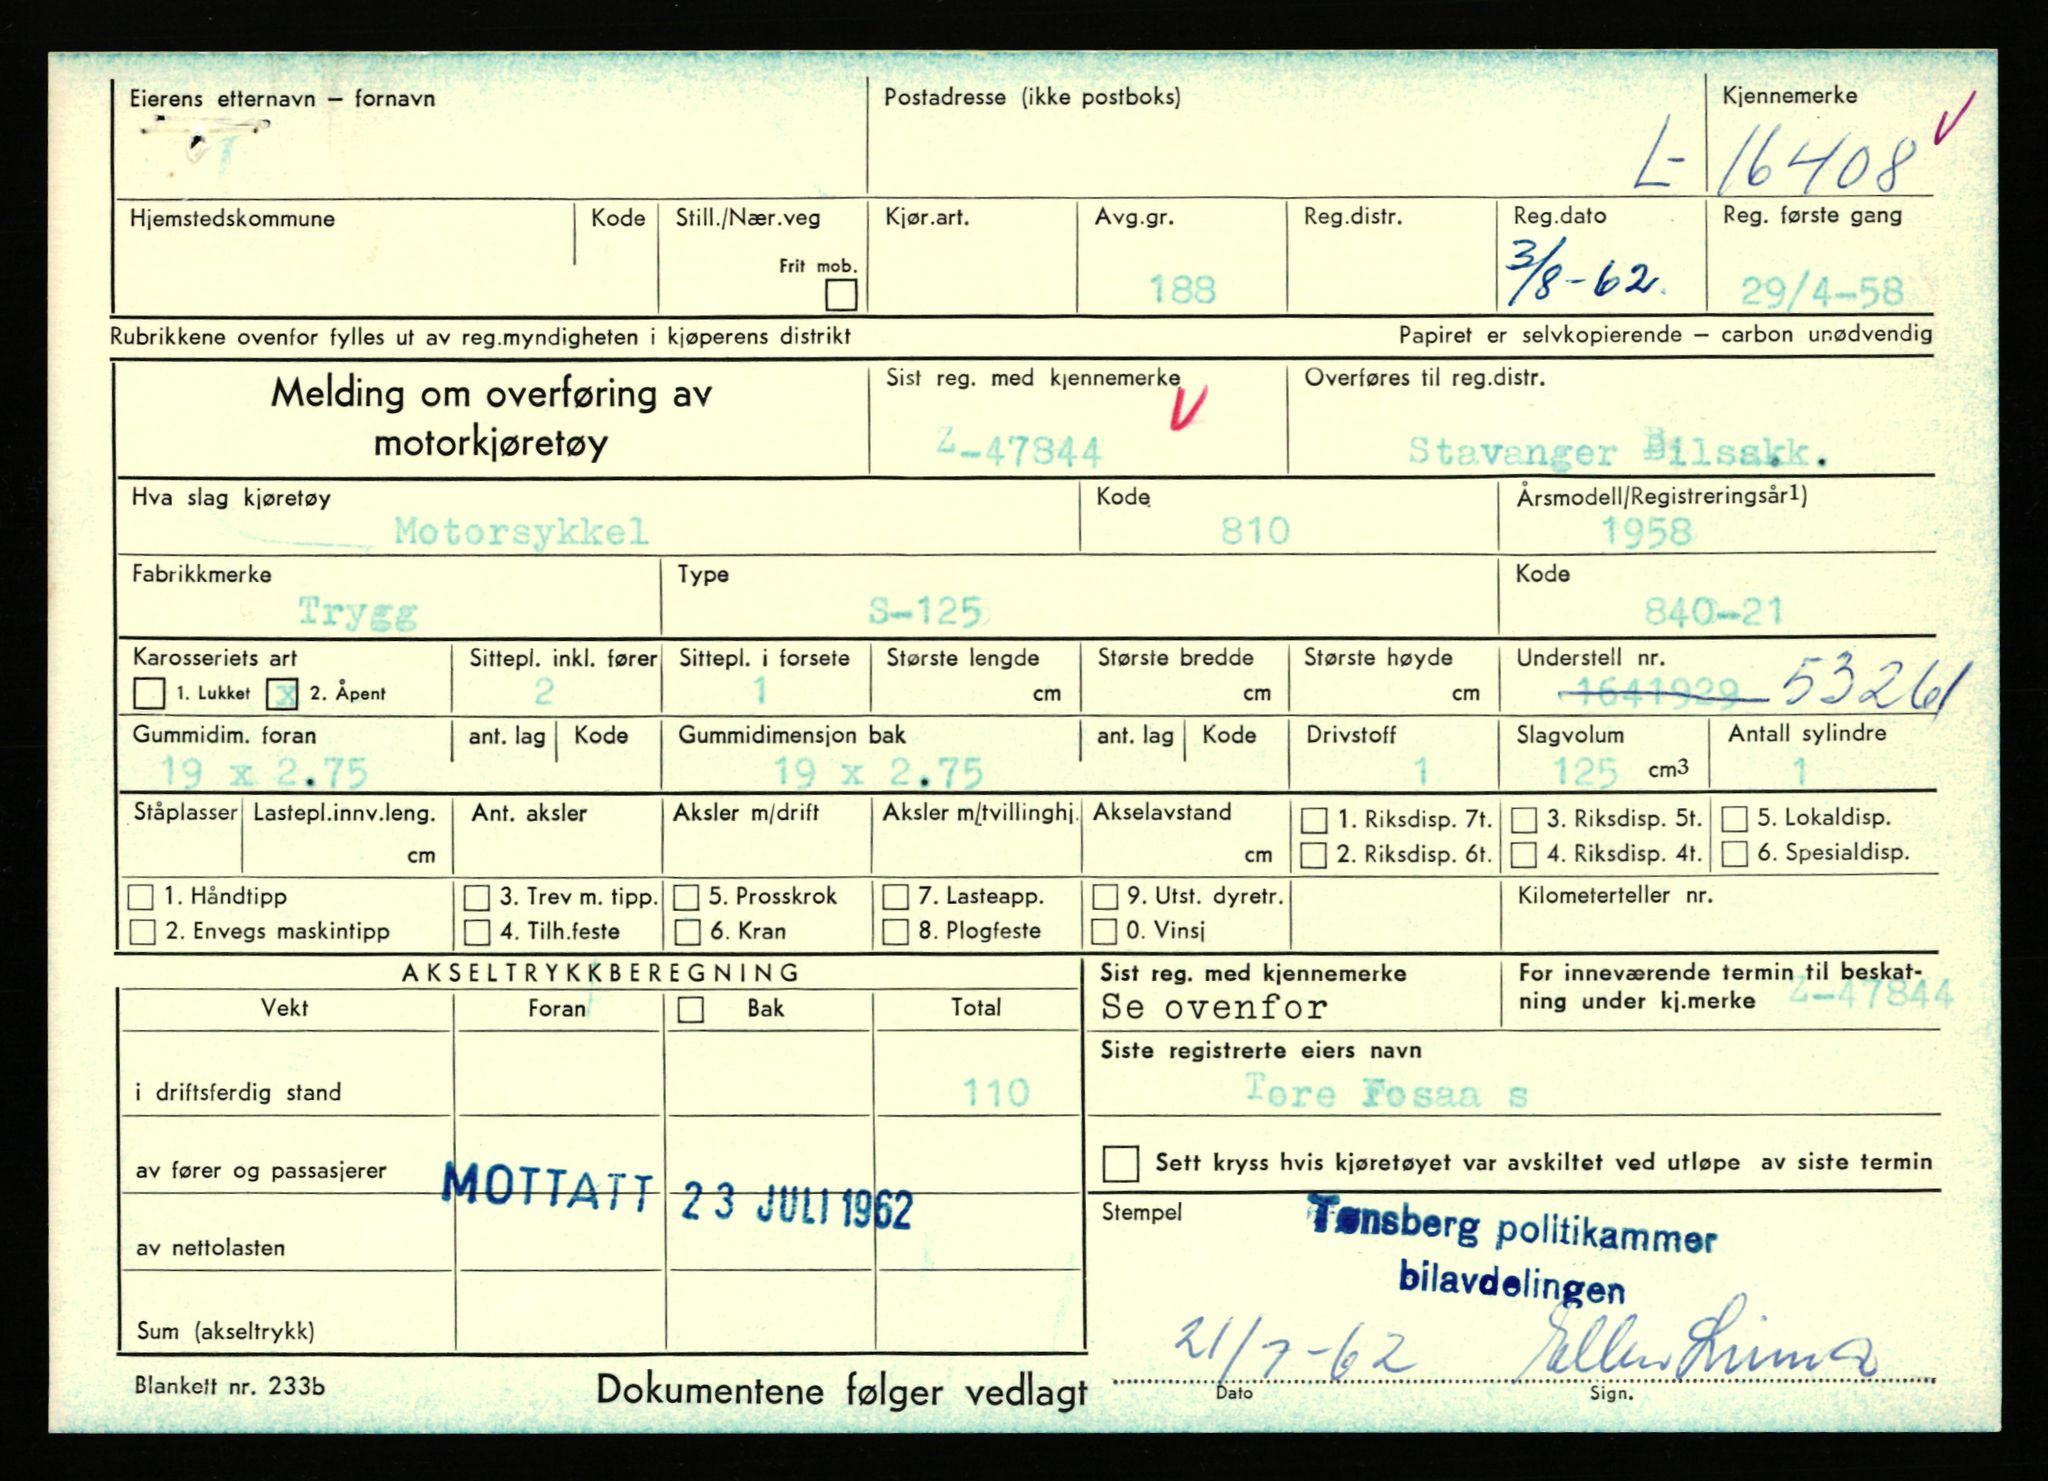 Eierens etternavn – fornavn
Postadresse (ikke postboks)
Kjennemerke
L- 16408
Hjemstedskommune
Kode
Still./Nær.veg
Frit mob.
Kjør.art.
Avg.gr.
188
Reg.distr.
Reg.dato
3/8-62.
Reg. første gang
29/4-58
Rubrikkene ovenfor fylles ut av reg.myndigheten i kjøperens distrikt
Papiret er selvkopierende – carbon unødvendig
Melding om overføring av
motorkjøretøy
Sist reg. med kjennemerke
Z-47844
Overføres til reg.distr.
Stavanger Bilsakk.
Hva slag kjøretøy
Motorsykkel
Kode
810
Årsmodell/Registreringsår1)
1958
Fabrikkmerke
Trygg
Type
S-125
Kode
840-21
Karosseriets art
1. Lukket x 2. Åpent
Sittepl. inkl. fører
2
Sittepl. i forsete
1
Største lengde
cm
Største bredde
cm
Største høyde
cm
Understell nr.
1641929 53261
Gummidim. foran
19 x 2.75
ant. lag
Kode
Gummidimensjon bak
19 x 2.75
ant. lag
Kode
Drivstoff
1
Slagvolum
125 cm3
Antall sylindre
1
Ståplasser
Lastepl.innv.leng.
cm
Ant. aksler
Aksler m/drift
Aksler m/tvillinghj.
Akselavstand
cm
1. Riksdisp. 7t.
2. Riksdisp. 6t.
3. Riksdisp. 5t.
4. Riksdisp. 4t.
5. Lokaldisp.
6. Spesialdisp.
1. Håndtipp
2. Envegs maskintipp
3. Trev m. tipp.
4. Tilh.feste
5. Prosskrok
6. Kran
7. Lasteapp.
8. Plogfeste
9. Utst. dyretr.
0. Vinsj
Kilometerteller nr.
AKSELTRYKKBEREGNING
Vekt
Foran
Bak
Total
i driftsferdig stand
110
av fører og passasjerer
MOTTATT 23 JULI 1962
av nettolasten
Sum (akseltrykk)
Sist reg. med kjennemerke
Se ovenfor
For inneværende termin til beskat-
ning under kj.merke Z-47844
Siste registrerte eiers navn
Tore Fosaa s
Sett kryss hvis kjøretøyet var avskiltet ved utløpe av siste termin
Stempel
Tønsberg politikammer
bilavdelingen
21/7-62 Ellen
Dato
Sign.
Blankett nr. 233b
Dokumentene følger vedlagt